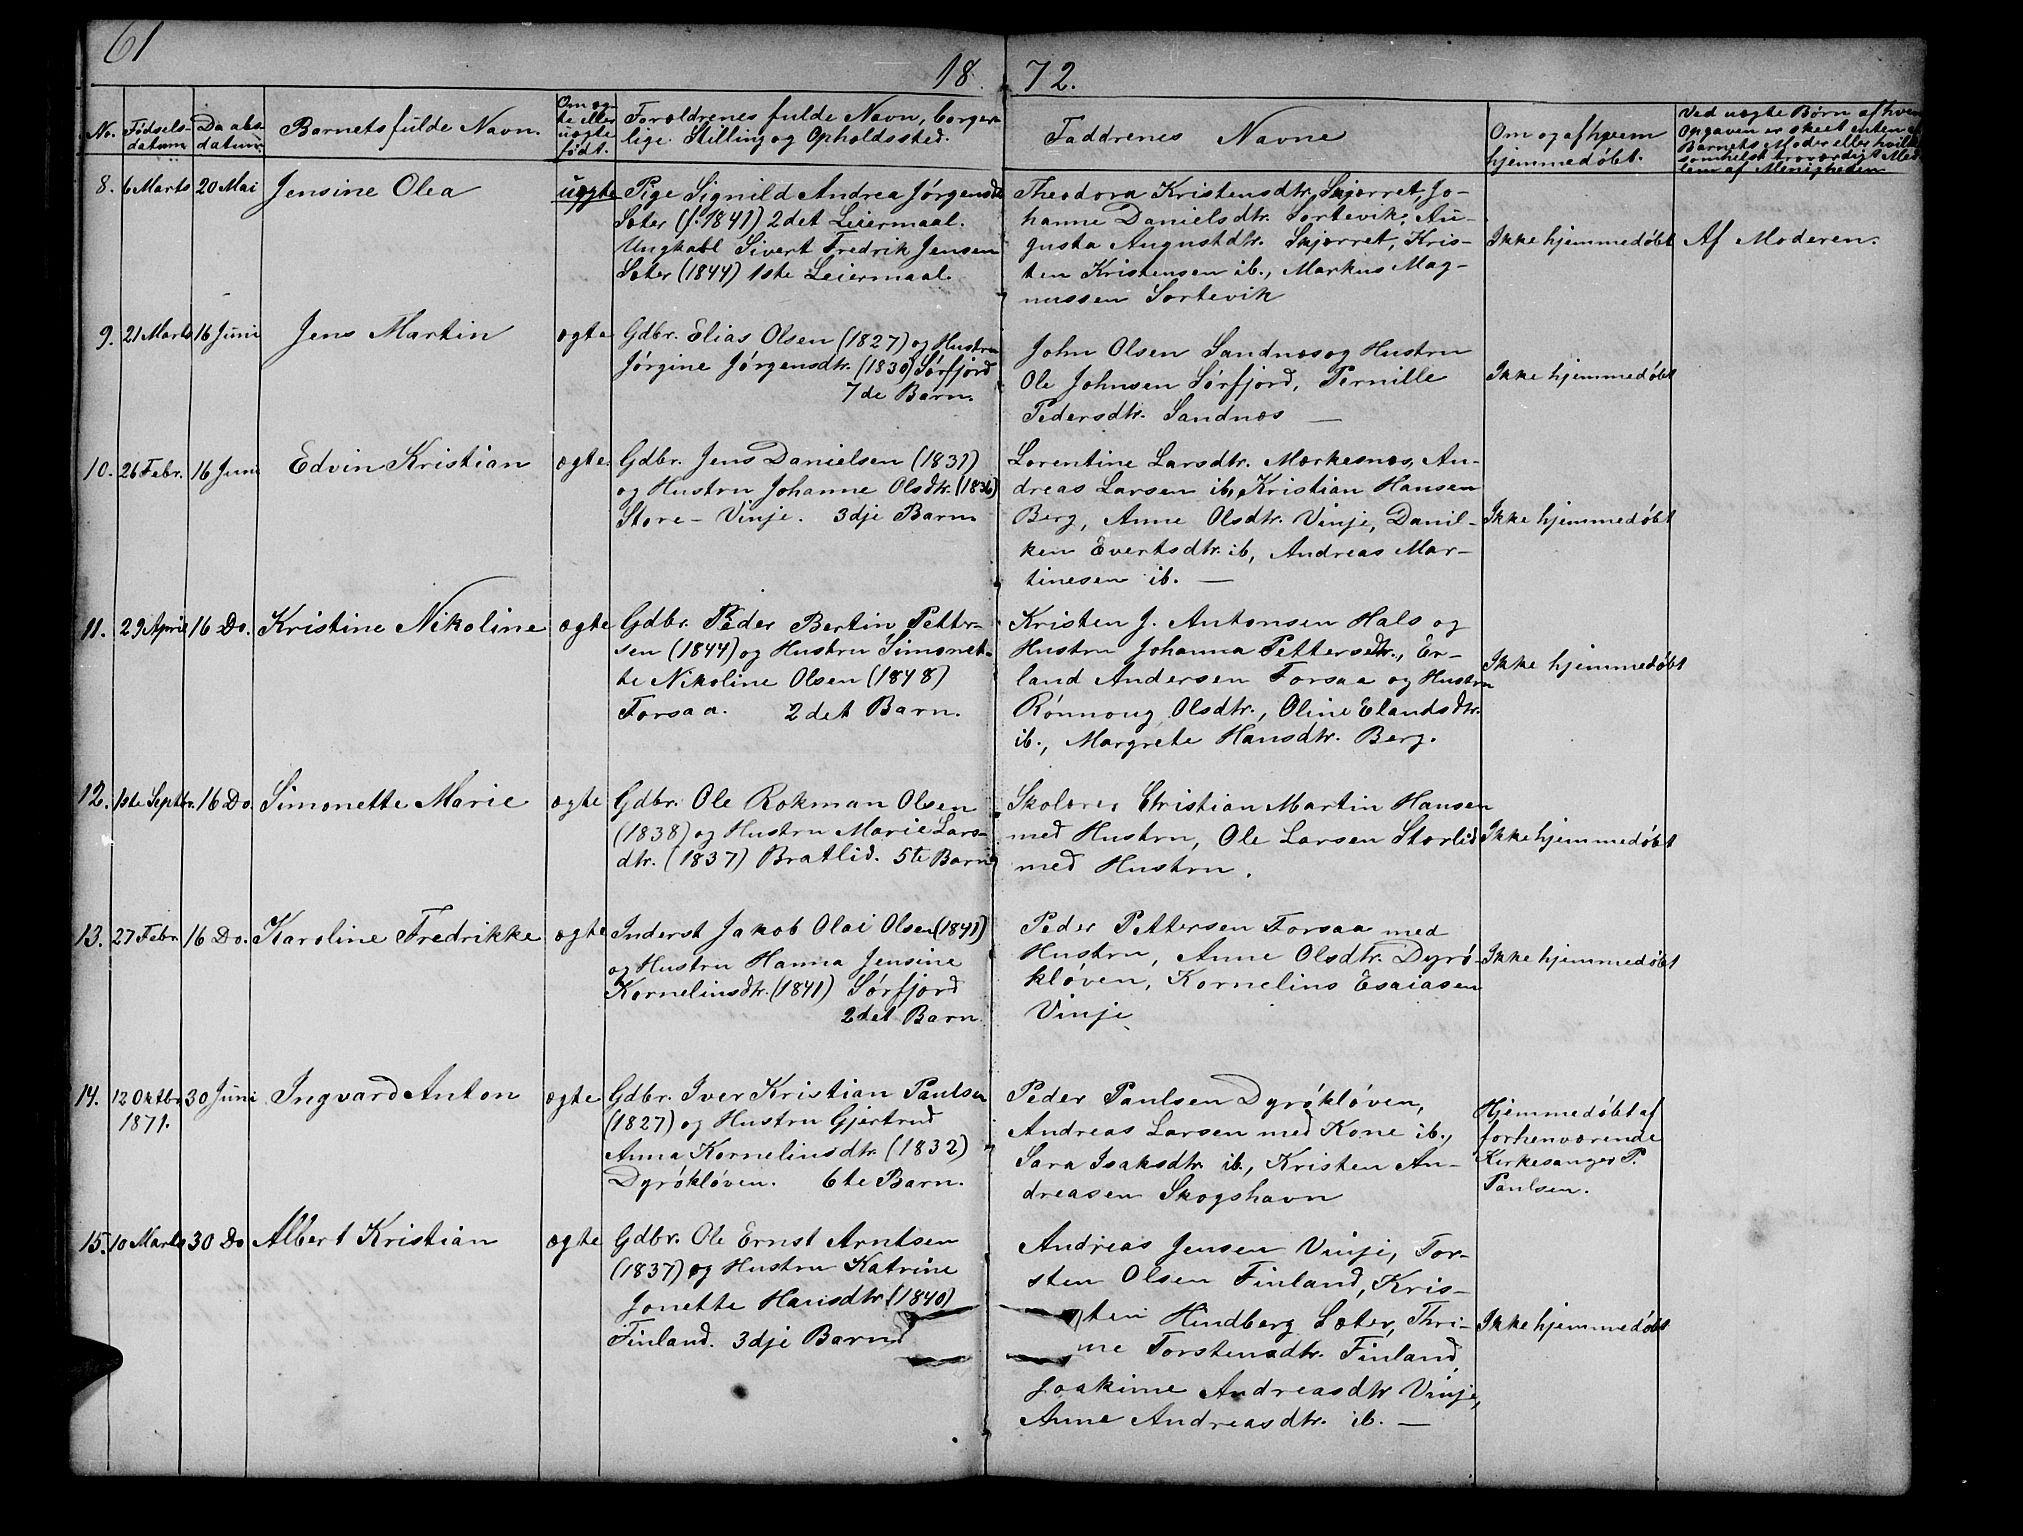 61
18 72.
No.
Fødsels-
datum
Daabs
datum.
Barnets fulde Navn.
Om æg-
te eller
uægte
født.
Forældrenes fulde Navn, borger-
lige Stilling og Opholdssted.
Faddrenes Navne
Om og af hvem
hjemmedøbt.
Ved uægte Børn af hvem
Opgaven er skeet enten af
Barnets Moder eller hvilket
somhelst troværdigt Med
lem af Menigheden
8. 6 Marts 20 Mai Jensine Olea uægte
Pige Signild Andrea Jørgensdtr
Sæter (f. 1841) 2det Leiermaal.
Ungkarl Sivert Fredrik Jensen
Sæter (1844) 1ste Leiermaal.
Theodora Kristensdtr. Skjærret, Jo-
hanne Danielsdtr. Sortevik, Au-
gusta Augustdtr. Skjærret, Kris-
ten Kristensen ib., Markus Mag-
nussen Sortevik
Ikke hjemmedøbt
Af Moderen.
9. 21 Marts 16 Juni Jens Martin ægte
Gdbr. Elias Olsen (1827) og Hustru
Jørgine Jørgensdtr. (1830) Sørfjord
7de Barn.
John Olsen Sandnæs og Hustru
Ole Johnsen Sørfjord, Pernille
Pedersdtr. Sandnæs —
Ikke hjemmedøbt
10. 26 Febr. 16 Juni Edvin Kristian ægte.
Gdbr. Jens Danielsen (1831)
og Hustru Johanne Olsdtr. (1836)
Store-Vinje. 3dje Barn
Lorentine Larsdtr. Mærkesnæs, An-
dreas Larsen ib, Kristian Hansen
Berg, Anne Olsdtr. Vinje, Danil-
ken Evertsdtr. ib, Andreas Mar-
tinesen ib. —
Ikke hjemmedøbt
11. 29 April 16 Do. Kristine Nikoline ægte
Gdbr. Peder Bertin Petter-
sen (1844) og Hustru Simonet-
te Nikoline Olsen (1848)
Forsaa. 2det Barn.
Kristen J. Antonsen Hals og
Hustru Johanna Pettersdtr., Er-
land Andersen Forsaa og Hustru
Rønnoug Olsdtr., Oline Elandsdtr.
ib., Margrete Hansdtr. Berg.
Ikke hjemmedøbt
12. 1ste Septbr. 16 Do Simonette Marie ægte
Gdbr. Ole Rokman Olsen
(1838) og Hustru Marie Lars-
dtr. (1837) Bratlid. 5te Barn
Skolærer Christian Martin Hansen
med Hustru, Ole Larsen Storlid
med Hustru.
Ikke hjemmedøbt
13. 27 Febr 16 Do. Karoline Fredrikke ægte
Inderst Jakob Olai Olsen (1841)
og Hustru Hanna Jensine
Korneliusdtr. (1841) Sørfjord
2det Barn
Peder Pettersen Forsaa med
Hustru, Anne Olsdtr. Dyrø-
kløven, Kornelius Esaiasen
Vinje
Ikke hjemmedøbt
14. 12 Oktbr 30 Juni Ingvard Anton ægte
1871.
Gdbr. Iver Kristian Paulsen
(1827) og Hustru Gjertrud
Anna Korneliusdtr. (1832)
Dyrøkløven. 6te Barn.
Peder Paulsen Dyrøkløven,
Andreas Larsen med Kone ib.,
Sara Isaksdtr. ib., Kristen An-
dreasen Skogshavn
Hjemmedøbt af
forhenværende
Kirkesanger P.
Paulsen.
15. 10 Marts 30 Do Albert Kristian ægte
Gdbr. Ole Ernst Arntsen
(1837) og Hustru Katrine
Jonette Hansdtr. (1840)
Finland. 3dje Barn
Andreas Jensen Vinje, Tor-
sten Olsen Finland, Kris-
ten Hindberg Sæter, Thri-
ne Torstensdtr. Finland,
Joakime Andreasdtr Vinje,
Anne Andreasdtr. ib. —
Ikke hjemmedøbt